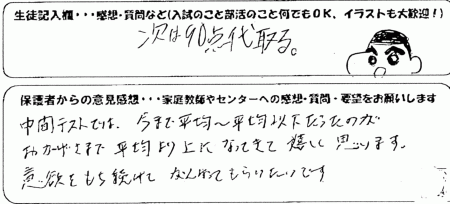 生徒記入欄・・・感想・質問など(入試のこと部活のこと何でもOK、イラストも大歓迎!)
次は90点代取る。
保護者からの意見感想・・・家庭教師やセンターへの感想・質問・要望をお願いします
中間テストでは、今まで平均〜平均以下だったのが
おかげさまで平均より上になってきて嬉しく思います。
意欲をもち続けてがんばってもらいたいです